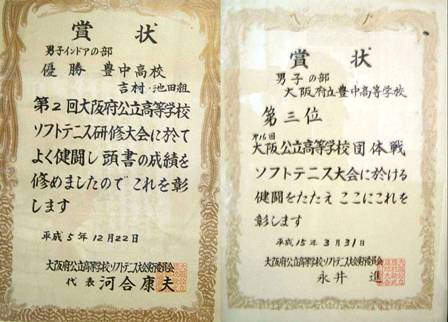 賞状
男子インドアの部
優勝 豊中高校
吉村・池田組
第2回大阪府公立高等学校
ソフトテニス研修大会に於て
よく健闘し頭書の成績を
修めましたので これを彰
します
平成5年12月22日
大阪府公立高等学校ソフトテニス大会実行委員会
代表 河合康夫
賞状
男子の部
大阪府立豊中高等学校
第三位
第16回
大阪公立高等学校団体戦
ソフトテニス大会に於ける
健闘をたたえ ここにこれを
彰します
平成15年3月31日
大阪府公立高等学校ソフトテニス大会実行委員会
永井 進